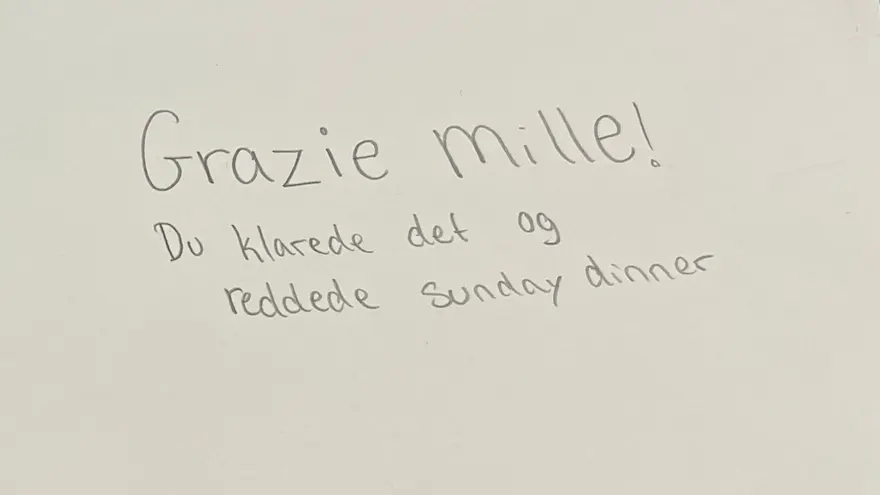 Grazie mille!
Du klarede det og
reddede sunday dinner